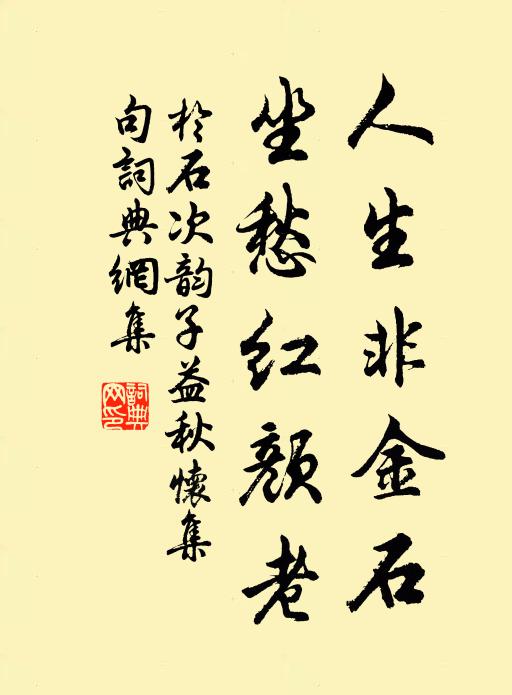 人生非金石
坐愁红顔老
於石次韵子益秋懷集
句詞典網集
詞典
网印